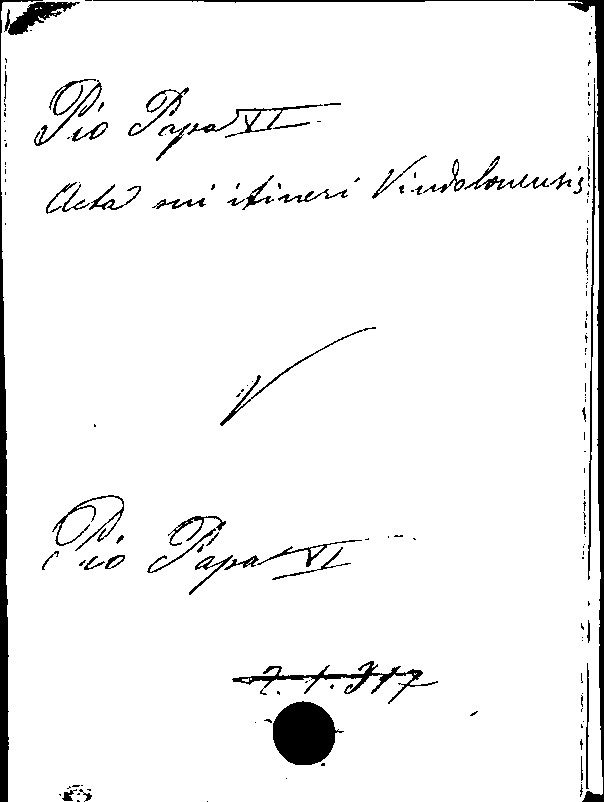 Pio Papa VI
Acta sui itineri Vindobonensis
Pio Papa VI
7.1.317